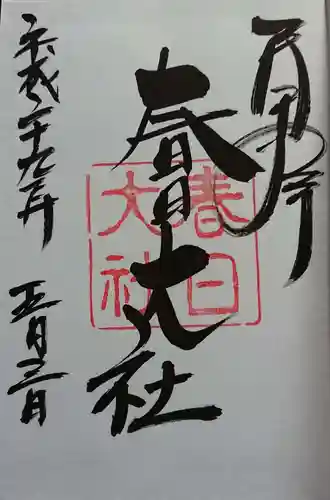 奉拝
春日大社
春日
大社
平成二十九年
五月三日